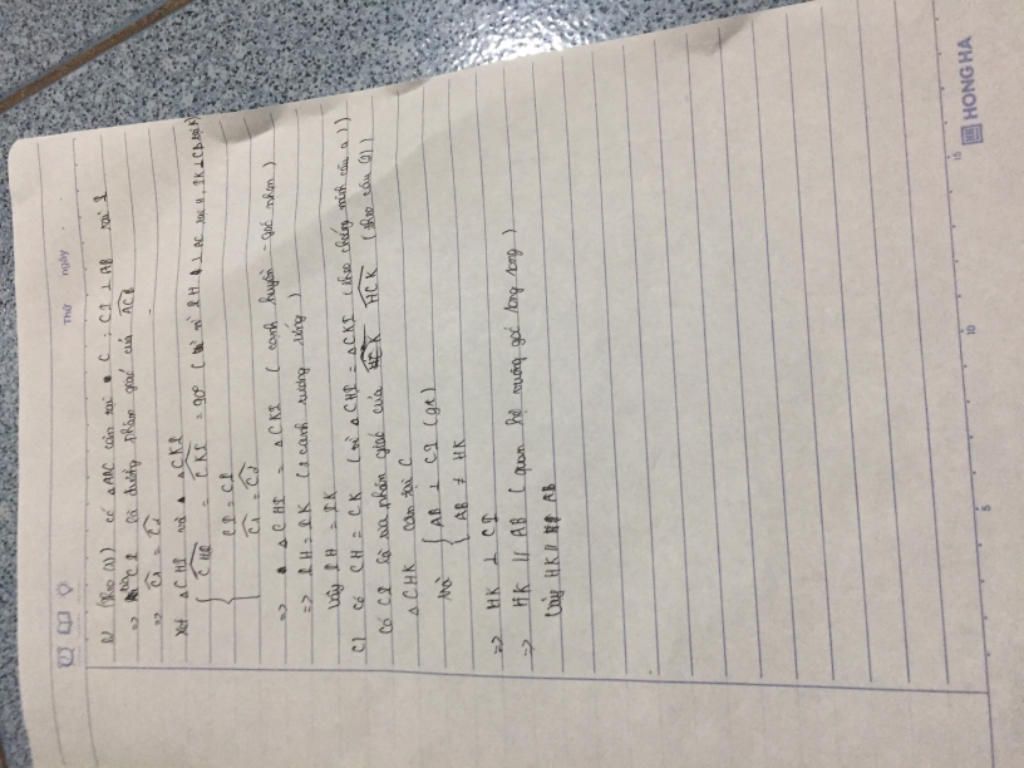 Thứ ngày
b) Theo a) có △ABC cân tại C ; CI ⊥ AB tại I
=> CI là đường phân giác của ACB
=> C1 = C2
Xét △CHI và △CKI
CHI = CKI = 90° ( vì IH ⊥ AC tại H, IK ⊥ CB tại K)
CI = CI
C1 = C2
=> △CHI = △CKI ( cạnh huyền góc nhọn )
=> IH = IK (2 cạnh tương ứng )
Vậy IH = IK
c) Có CH = CK ( vì △CHI = △CKI ( theo chứng minh câu a ))
Có CI là tia phân giác của HCK ( theo câu a))
△CHK cân tại C
mà { AB ⊥ CI (gt)
AB ≠ HK
=> HK ⊥ CI
=> HK // AB ( quan hệ vuông góc song song )
Vậy HK // AB
5 10 15
HONG HA